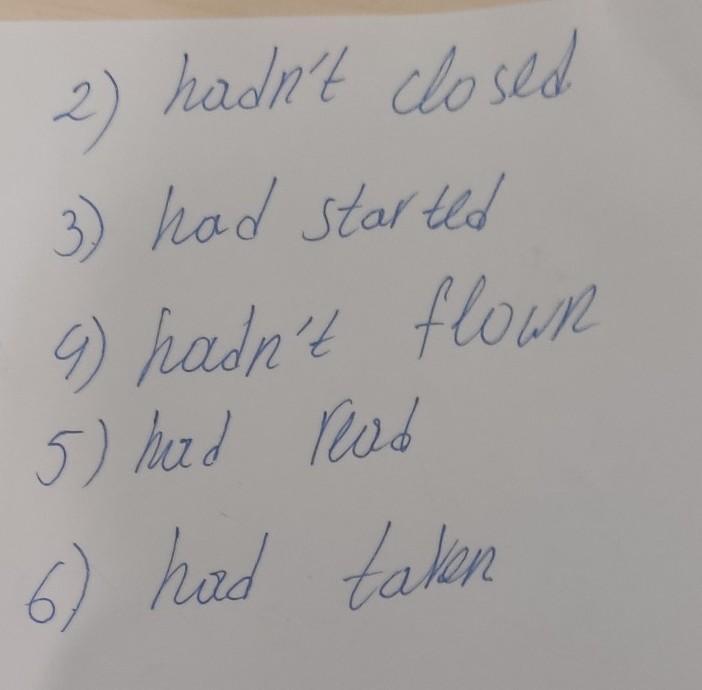 2) hadn't closed
3) had started
4) hadn't flown
5) had read
6) had taken